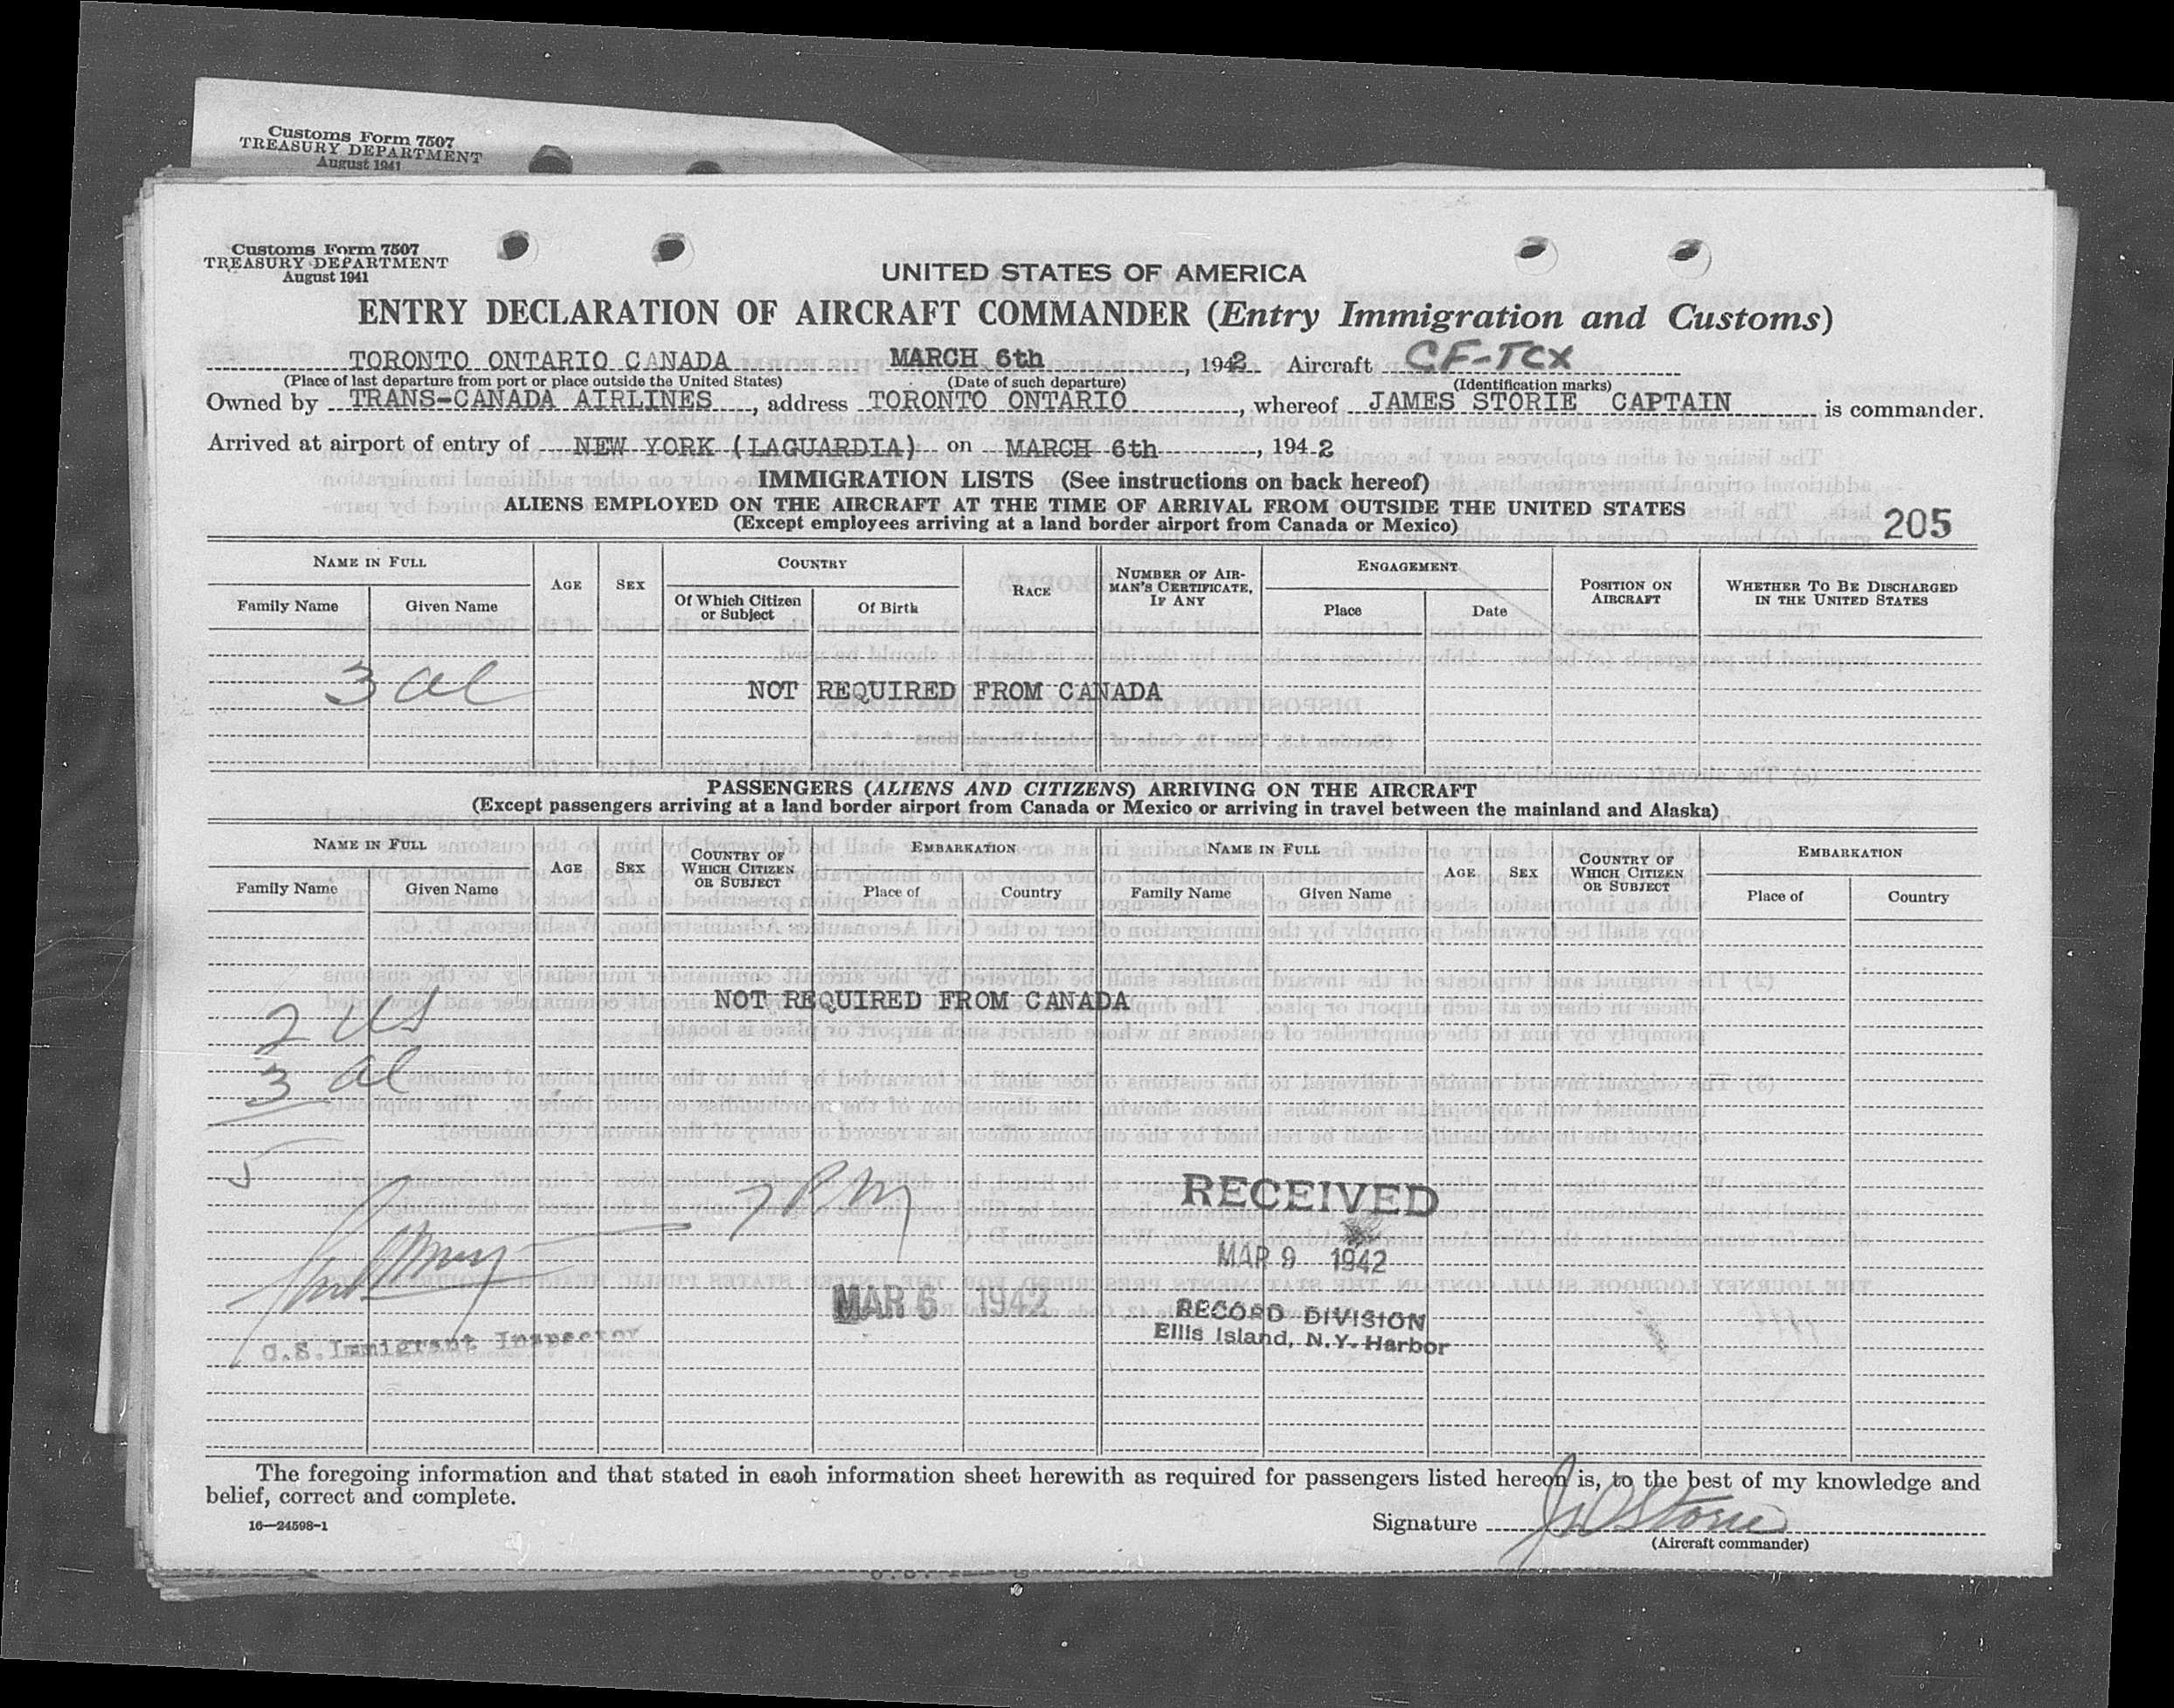 Customs Form 7507
TREASURY DEPARTMENT
August 1941
Customs Form 7507
TREASURY DEPARTMENT
August 1941
UNITED STATES OF AMERICA
ENTRY DECLARATION OF AIRCRAFT COMMANDER (Entry Immigration and Customs)
TORONTO ONTARIO CANADA MARCH 6th, 1942 Aircraft CF-TCX
(Place of last departure from port or place outside the United States) (Date of such departure) (Identification marks)
Owned by TRANS-CANADA AIRLINES, address TORONTO ONTARIO, whereof JAMES STORIE CAPTAIN is commander.
Arrived at airport of entry of NEW YORK (LAGUARDIA) on MARCH 6th, 1942
IMMIGRATION LISTS (See instructions on back hereof)
ALIENS EMPLOYED ON THE AIRCRAFT AT THE TIME OF ARRIVAL FROM OUTSIDE THE UNITED STATES
(Except employees arriving at a land border airport from Canada or Mexico)
205
NAME IN FULL AGE SEX COUNTRY RACE NUMBER OF AIRMAN'S CERTIFICATE, IF ANY ENGAGEMENT POSITION ON AIRCRAFT WHETHER TO BE DISCHARGED IN THE UNITED STATES
Family Name Given Name Of Which Citizen or Subject Of Birth Place Date
3 al
NOT REQUIRED FROM CANADA
PASSENGERS (ALIENS AND CITIZENS) ARRIVING ON THE AIRCRAFT
(Except passengers arriving at a land border airport from Canada or Mexico or arriving in travel between the mainland and Alaska)
NAME IN FULL AGE SEX COUNTRY OF WHICH CITIZEN OR SUBJECT EMBARKATION NAME IN FULL AGE SEX COUNTRY OF WHICH CITIZEN OR SUBJECT EMBARKATION
Family Name Given Name Place of Country Family Name Given Name Place of Country
NOT REQUIRED FROM CANADA
2 US
3 al
5
7 PM
RECEIVED
MAR 9 1942
MAR 6 1942
RECORD DIVISION
Ellis Island, N.Y. Harbor
U.S. Immigrant Inspector
The foregoing information and that stated in each information sheet herewith as required for passengers listed hereon is, to the best of my knowledge and
belief, correct and complete.
16—24598-1
Signature
(Aircraft commander)